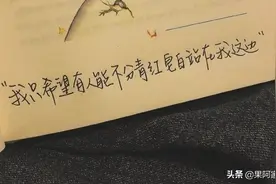 “我只希望有人能不分青红皂白站在我这边”
头条 @果阿迦